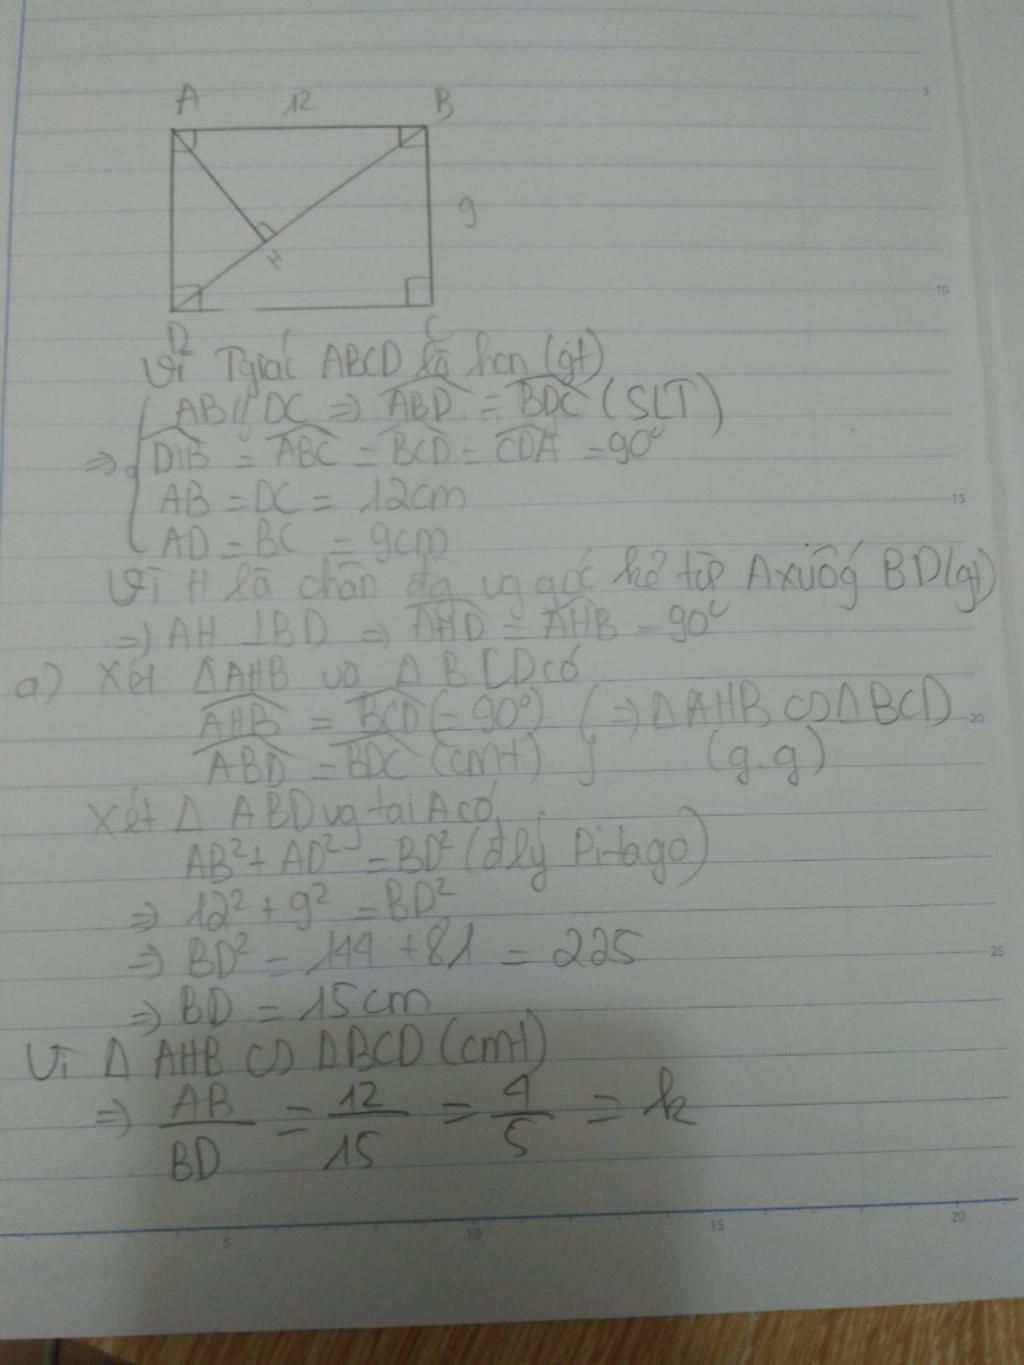 A 12 B
9
H
D C
Vì Tgiác ABCD là hcn (gt)
AB // DC => ABD = BDC (SLT)
=> DAB = ABC = BCD = CDA = 90°
AB = DC = 12cm
AD = BC = 9cm
Vì H là chân đg vg góc kẻ từ A xuống BD (gt)
=> AH ⊥ BD => AHD = AHB = 90°
a) Xét Δ AHB và Δ BCD có
AHB = BCD (= 90°) } => Δ AHB ∽ Δ BCD
ABD = BDC (cmt) (g.g)
Xét Δ ABD vg tại A có
AB² + AD² = BD² (đlý Pi-ta-go)
=> 12² + 9² = BD²
=> BD² = 144 + 81 = 225
=> BD = 15cm
Vì Δ AHB ∽ Δ BCD (cmt)
=> AB/BD = 12/15 = 4/5 = k
5 10 15 20
5
10
15
20
25